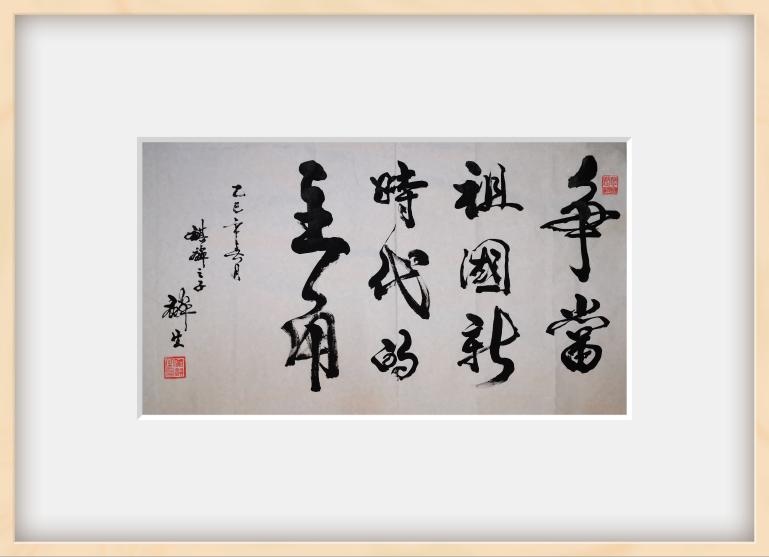 争當
祖國新
時代的
主角
乙巳年春月
麒麟之子
麟生